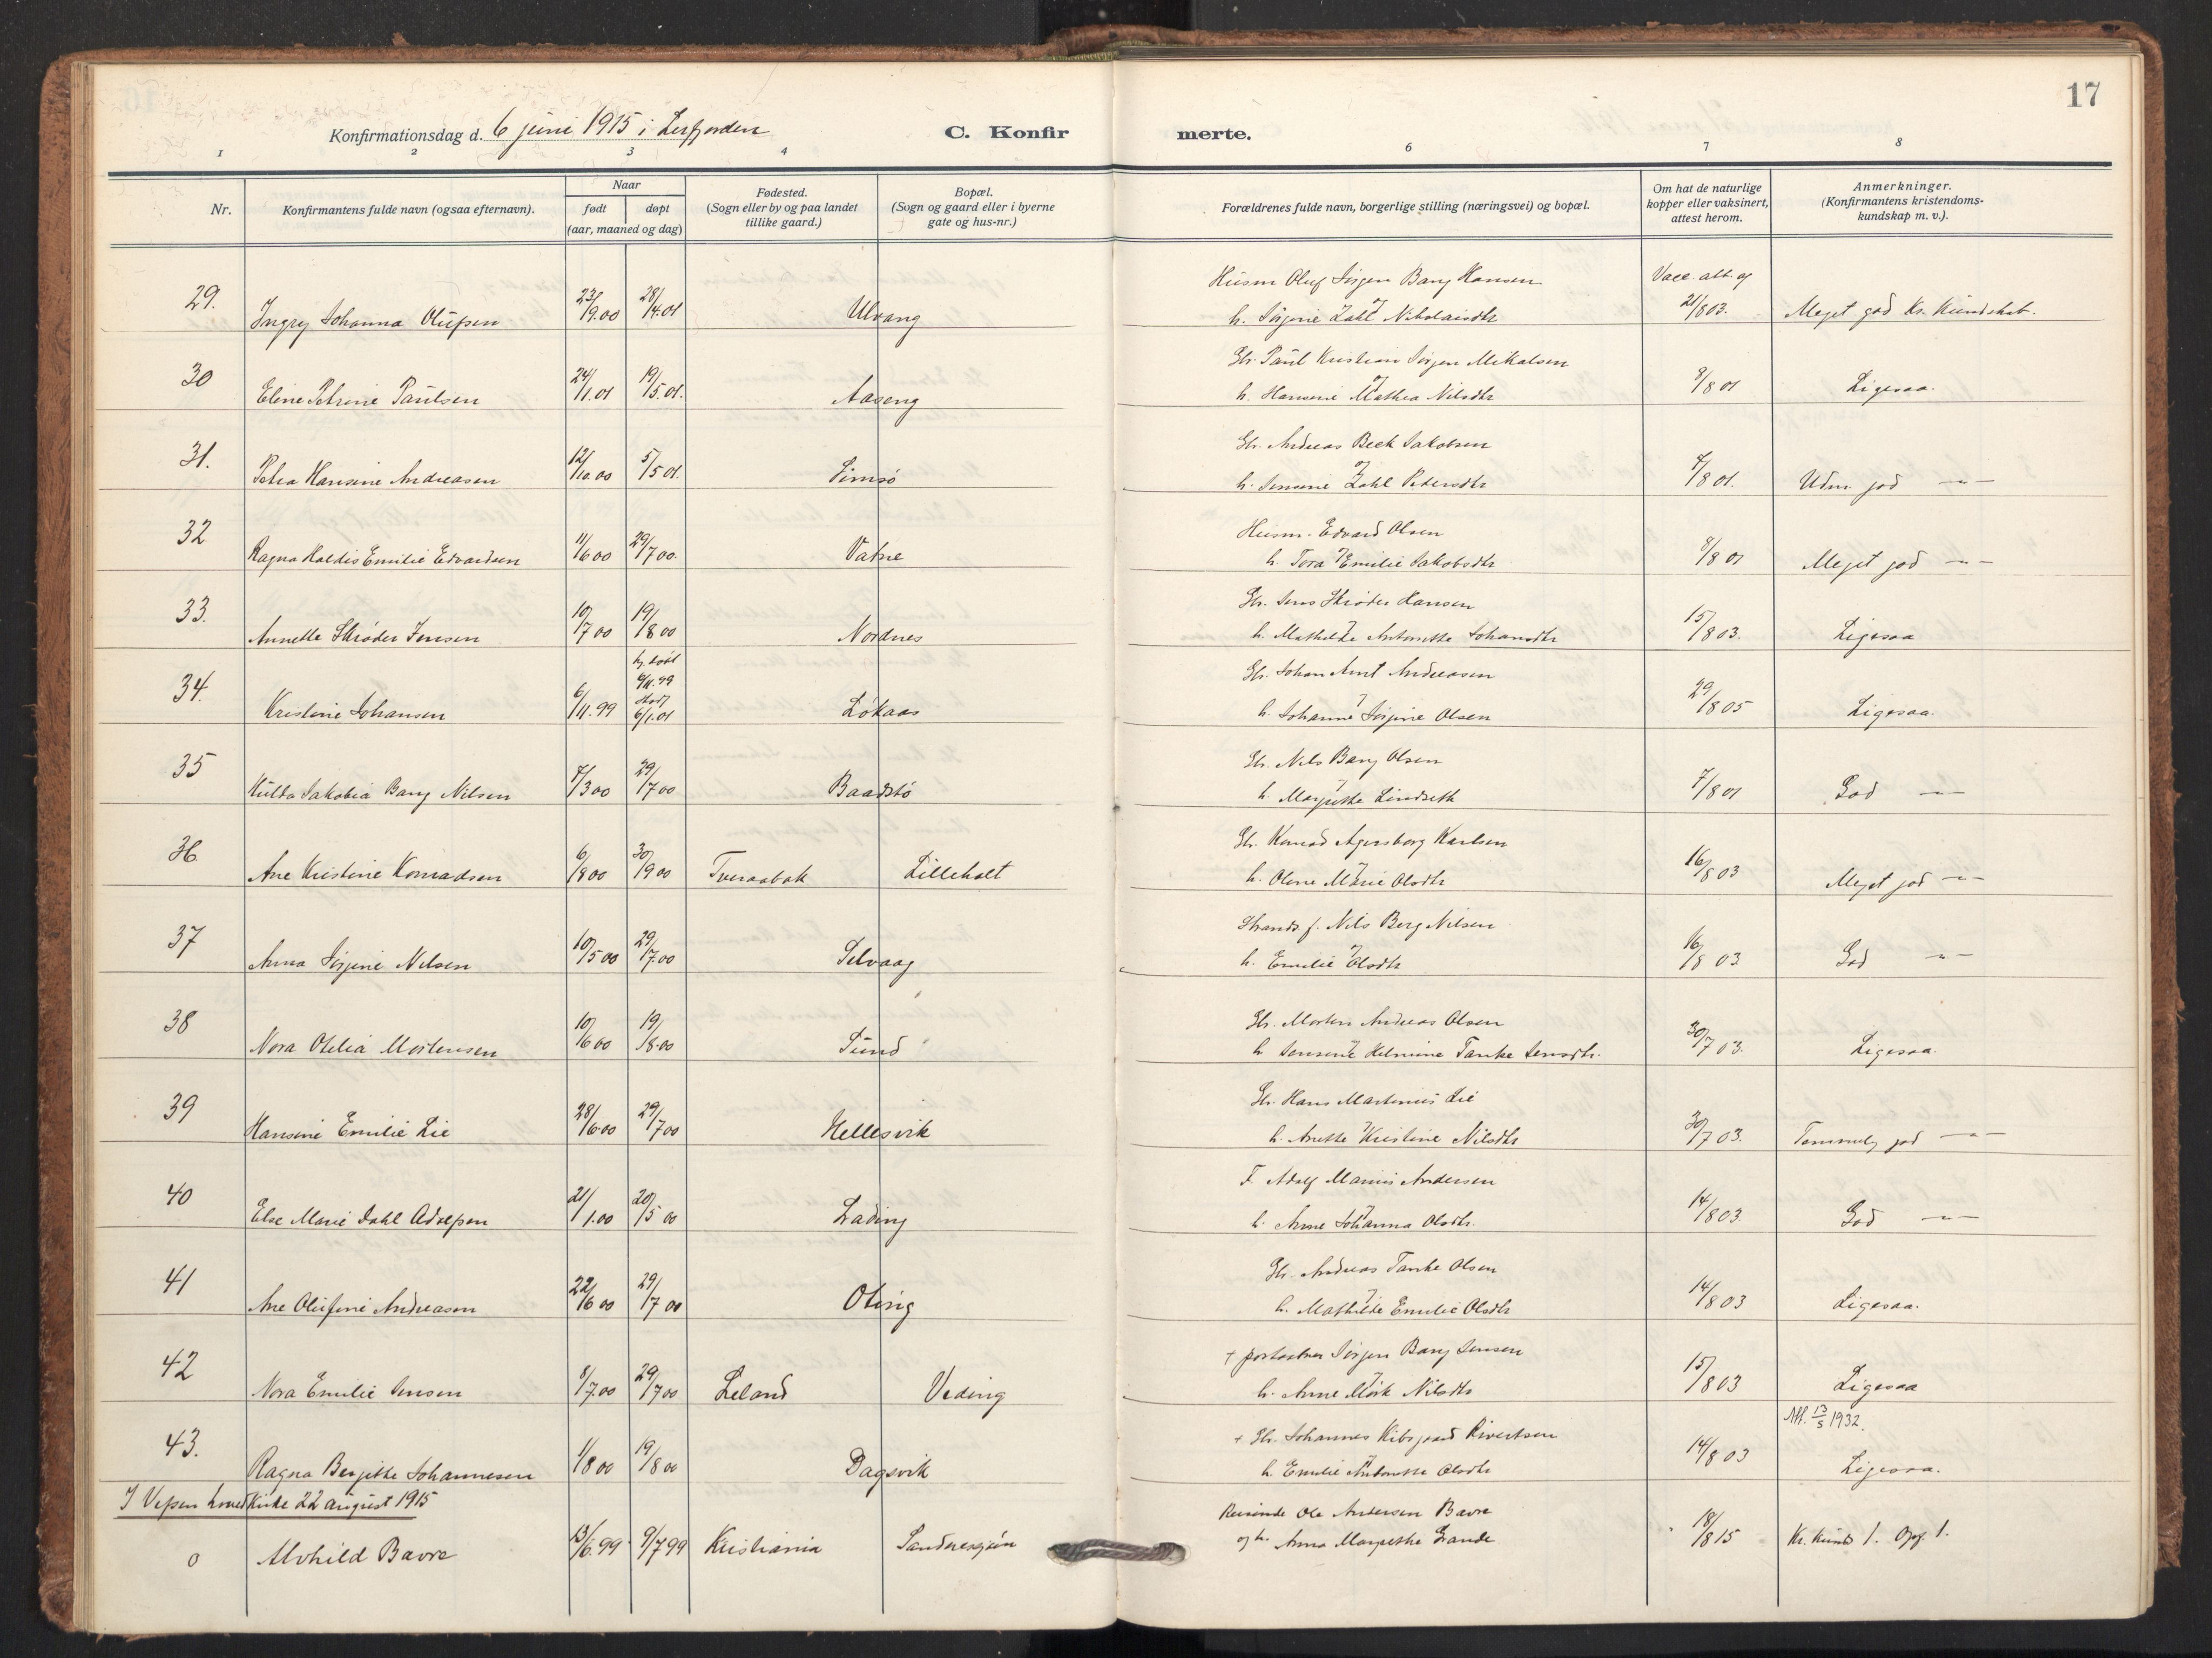 17
Konfirmationsdag d. 6 juni 1915 i Leirfjorden
C. Konfirmerte.
1 2 3 4 6 7 8
Nr.
Konfirmantens fulde navn (ogsaa efternavn).
Naar
født
døpt
(aar, maaned og dag)
Fødested.
(Sogn eller by og paa landet
tillike gaard.)
Bopæl.
(Sogn og gaard eller i byerne
gate og hus-nr.)
Forældrenes fulde navn, borgerlige stilling (næringsvei) og bopæl.
Om hat de naturlige
kopper eller vaksinert,
attest herom.
Anmerkninger.
(Konfirmantens kristendoms-
kundskap m. v.).
Husm Oluf Jørgen Bang Hansen Vacc. att. af
29. Ingry Johanna Olufsen 23/9.00 28/4.01 Ulvang h. Jørgine Zahl Nikolaisdtr 21/8 03. Meget god Kr. Kundskab.
Gbr. Paul Kristian Jørgen Mikalsen
30 Eline Petrine Paulsen 24/1.01 19/5.01. Aaseng h. Hansine Mathea Nilsdtr 8/8 01 Ligesaa.
Gbr. Andreas Beck Jakobsen
31. Petra Hansine Andreasen 12/10.00 5/5 01. Simsø h. Jensine Zahl Pedersdtr 7/8 01. Udm. god — " —
Husm. Edvard Olsen
32 Ragna Haldis Emilie Edvardsen 11/6 00 29/7 00. Vatne h. Tora Emilie Jakobsdtr 8/8 01 Meget god — " —
Gbr. Jens Skrøder Hansen
33. Annette Skrøder Jensen 10/7 00 19/8 00 Nordnes h. Mathilde Antonette Johansdtr 15/8 03. Ligesaa
hj. døbt
Gbr. Johan Arnt Andreasen
34. Kristine Johansen 6/11.99 6/1.01 Løkaas h. Johanne Jørgine Olsen 29/8 05 Ligesaa.
Gbr. Nils Bang Olsen
35 Hulda Jakobia Bang Nilsen 7/3 00 29/7 00 Baadstø h. Margrethe Lindseth 7/8 01 God — " —
Gbr. Konrad Agersborg Karlsen
36. Ane Kristine Konradsen 6/8 00 30/9 00 Tveraabak Lilleholt h. Oline Marie Olsdtr 16/8 03 Meget god — " —
Strands. f. Nils Berg Nilsen
37 Anna Jørgine Nilsen 10/5 00 29/7.00 Selvaag h. Emilie Olsdtr 16/8 03 God — " —
Gbr. Morten Andreas Olsen
38 Nora Otelia Mortensen 10/6 00 19/8.00 Sund h Jensine Helmine Tanke Jensdtr. 30/7 03. Ligesaa.
Gbr. Hans Martinus Lie
39 Hansine Emilie Lie 28/6.00 29/7 00 Hellesvik h. Anette Kristine Nilsdtr 30/7 03. Temmelig god — " —
F. Adolf Marius Andersen
40 Else Marie Dahl Adolfsen 21/1.00 20/5 00 Lading h. Anne Johanna Olsdtr. 14/8 03. God — " —
Gbr. Andreas Tanke Olsen
41 Ane Olufine Andreasen 22/6 00 29/7 00 Oting h. Mathilde Emilie Olsdtr 14/8 03 Ligesaa.
+ Jørgen Bang Jensen
42 Nora Emilie Jensen 8/7.00 29/7 00 Leland Veding h. Anne Mörk Nilsdtr 15/8 03 Ligesaa
Att. 13/5 1932.
+ Gbr. Johannes Kibsgaard Sivertsen
43. Ragna Bergitte Johannesen 1/8 00 19/8 00 Dagsvik h. Emilie Antonette Olsdtr 14/8 03 Ligesaa.
I Vefsen hovedkirke 22 august 1915
Reisende Ole Andersen Bavre
0 Alvhild Bavre 13/6.99 9/7 99 Kristiania Sandnessjøen og h. Anna Margrethe Grande 18/8 15 Kr. kunds 1. Opf. 1.